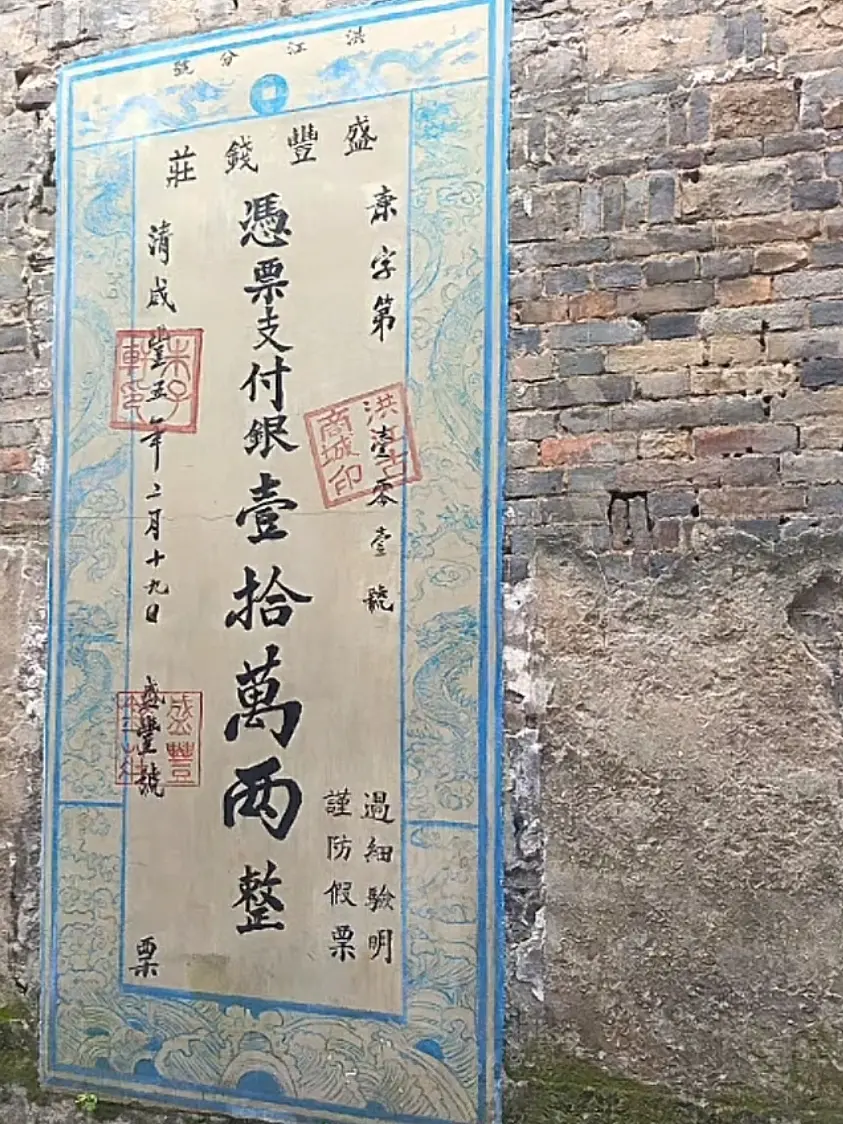 洪江分號
盛豐錢莊
康字第壹零壹號
過細驗明
謹防假票
憑票支付銀壹拾萬两整
清咸豐五年二月十九日
盛豐號
票
洪江古商城印
盛豐